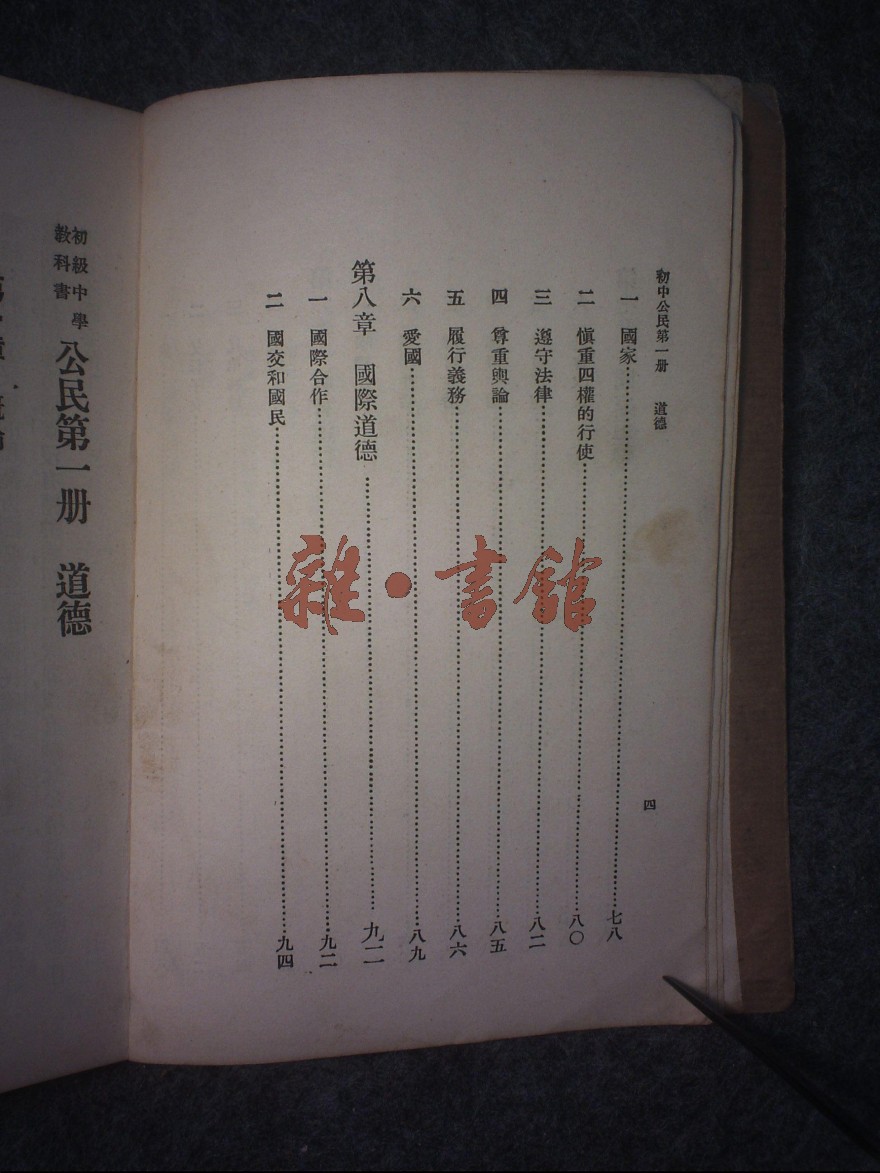 初中公民第一册　道德
四
一　國家……七八
二　愼重四權的行使……八〇
三　遵守法律……八二
四　尊重輿論……八五
五　履行義務……八六
六　愛國……八九
第八章　國際道德……九二
一　國際合作……九二
二　國交和國民……九四
初級中學
教科書
公民第一册　道德
雜·書館